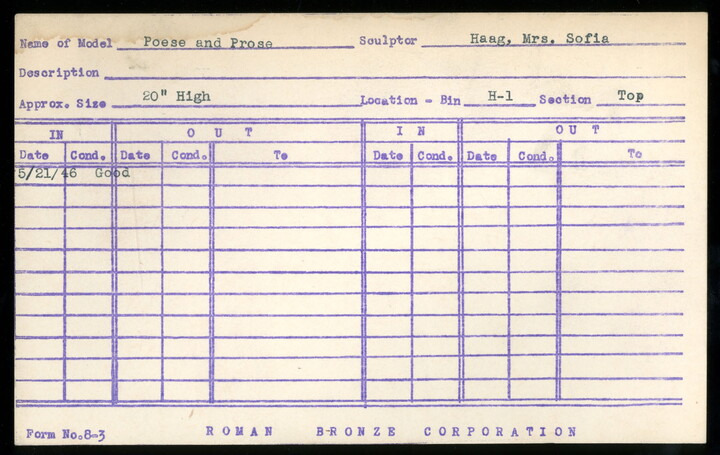 Name of Model Poese and Prose Sculptor Haag, Mrs. Sofia
Description
Approx. Size 20" High Location - Bin H-1 Section Top
IN OUT IN OUT
Date Cond. Date Cond. To Date Cond. Date Cond. To
5/21/46 Good
Form No.8-3 ROMAN B-RONZE CORPORATION